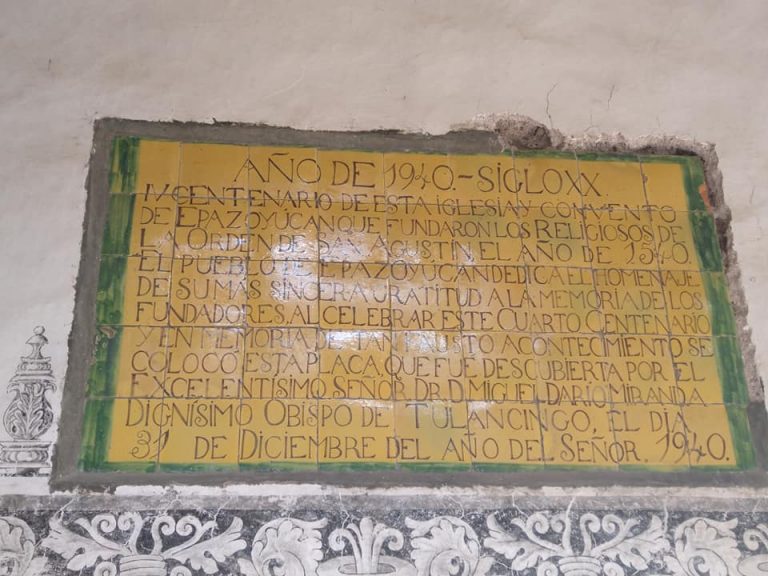 AÑO DE 1940.-SIGLO XX.
IV CENTENARIO DE ESTA IGLESIA Y CONVENTO
DE EPAZOYUCAN QUE FUNDARON LOS RELIGIOSOS DE
LA ORDEN DE SAN AGUSTIN, EL AÑO DE 1540.
EL PUEBLO DE EPAZOYUCAN DEDICA EL HOMENAJE
DE SU MAS SINCERA GRATITUD A LA MEMORIA DE LOS
FUNDADORES, AL CELEBRAR ESTE CUARTO CENTENARIO
Y EN MEMORIA DE TAN FAUSTO ACONTECIMIENTO SE
COLOCÓ ESTA PLACA QUE FUE DESCUBIERTA POR EL
EXCELENTÍSIMO SEÑOR DR. D. MIGUEL DARÍO MIRANDA
DIGNÍSIMO OBISPO DE TULANCINGO, EL DIA
31 DE DICIEMBRE DEL AÑO DEL SEÑOR. 1940.